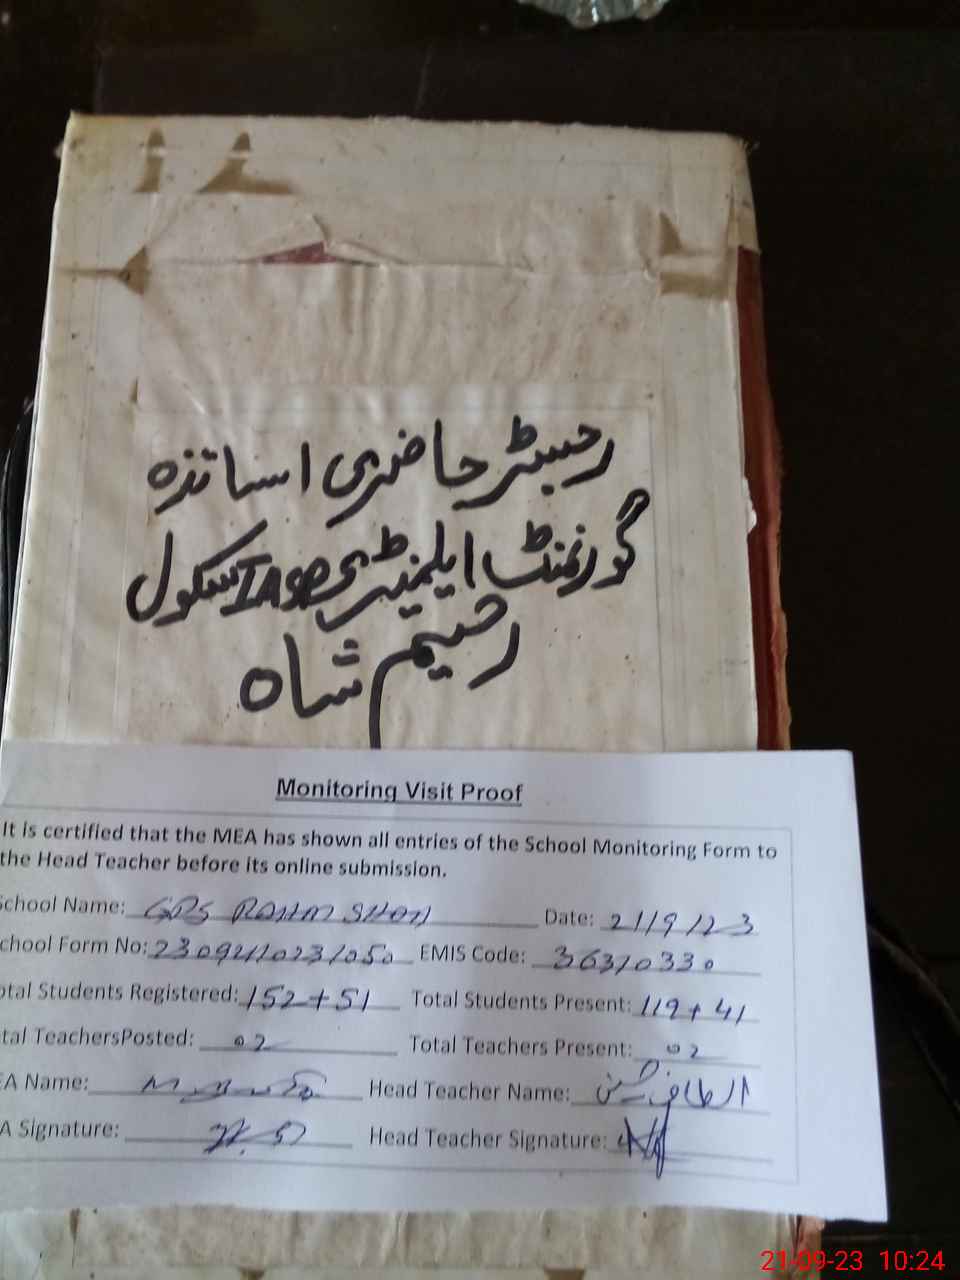 رجسٹر حاضری اساتذہ
گورنمنٹ ایلمنٹری سکول
رحیم شاہ
Monitoring Visit Proof
It is certified that the MEA has shown all entries of the School Monitoring Form to
the Head Teacher before its online submission.
School Name: GPS RAHIM SHAH Date: 21/9/23
chool Form No: EMIS Code: 36310330
otal Students Registered: 152+51 Total Students Present: 119+41
tal TeachersPosted: 02 Total Teachers Present: 02
EA Name: Head Teacher Name: الطاف حسین
A Signature: Head Teacher Signature:
21-09-23 10:24